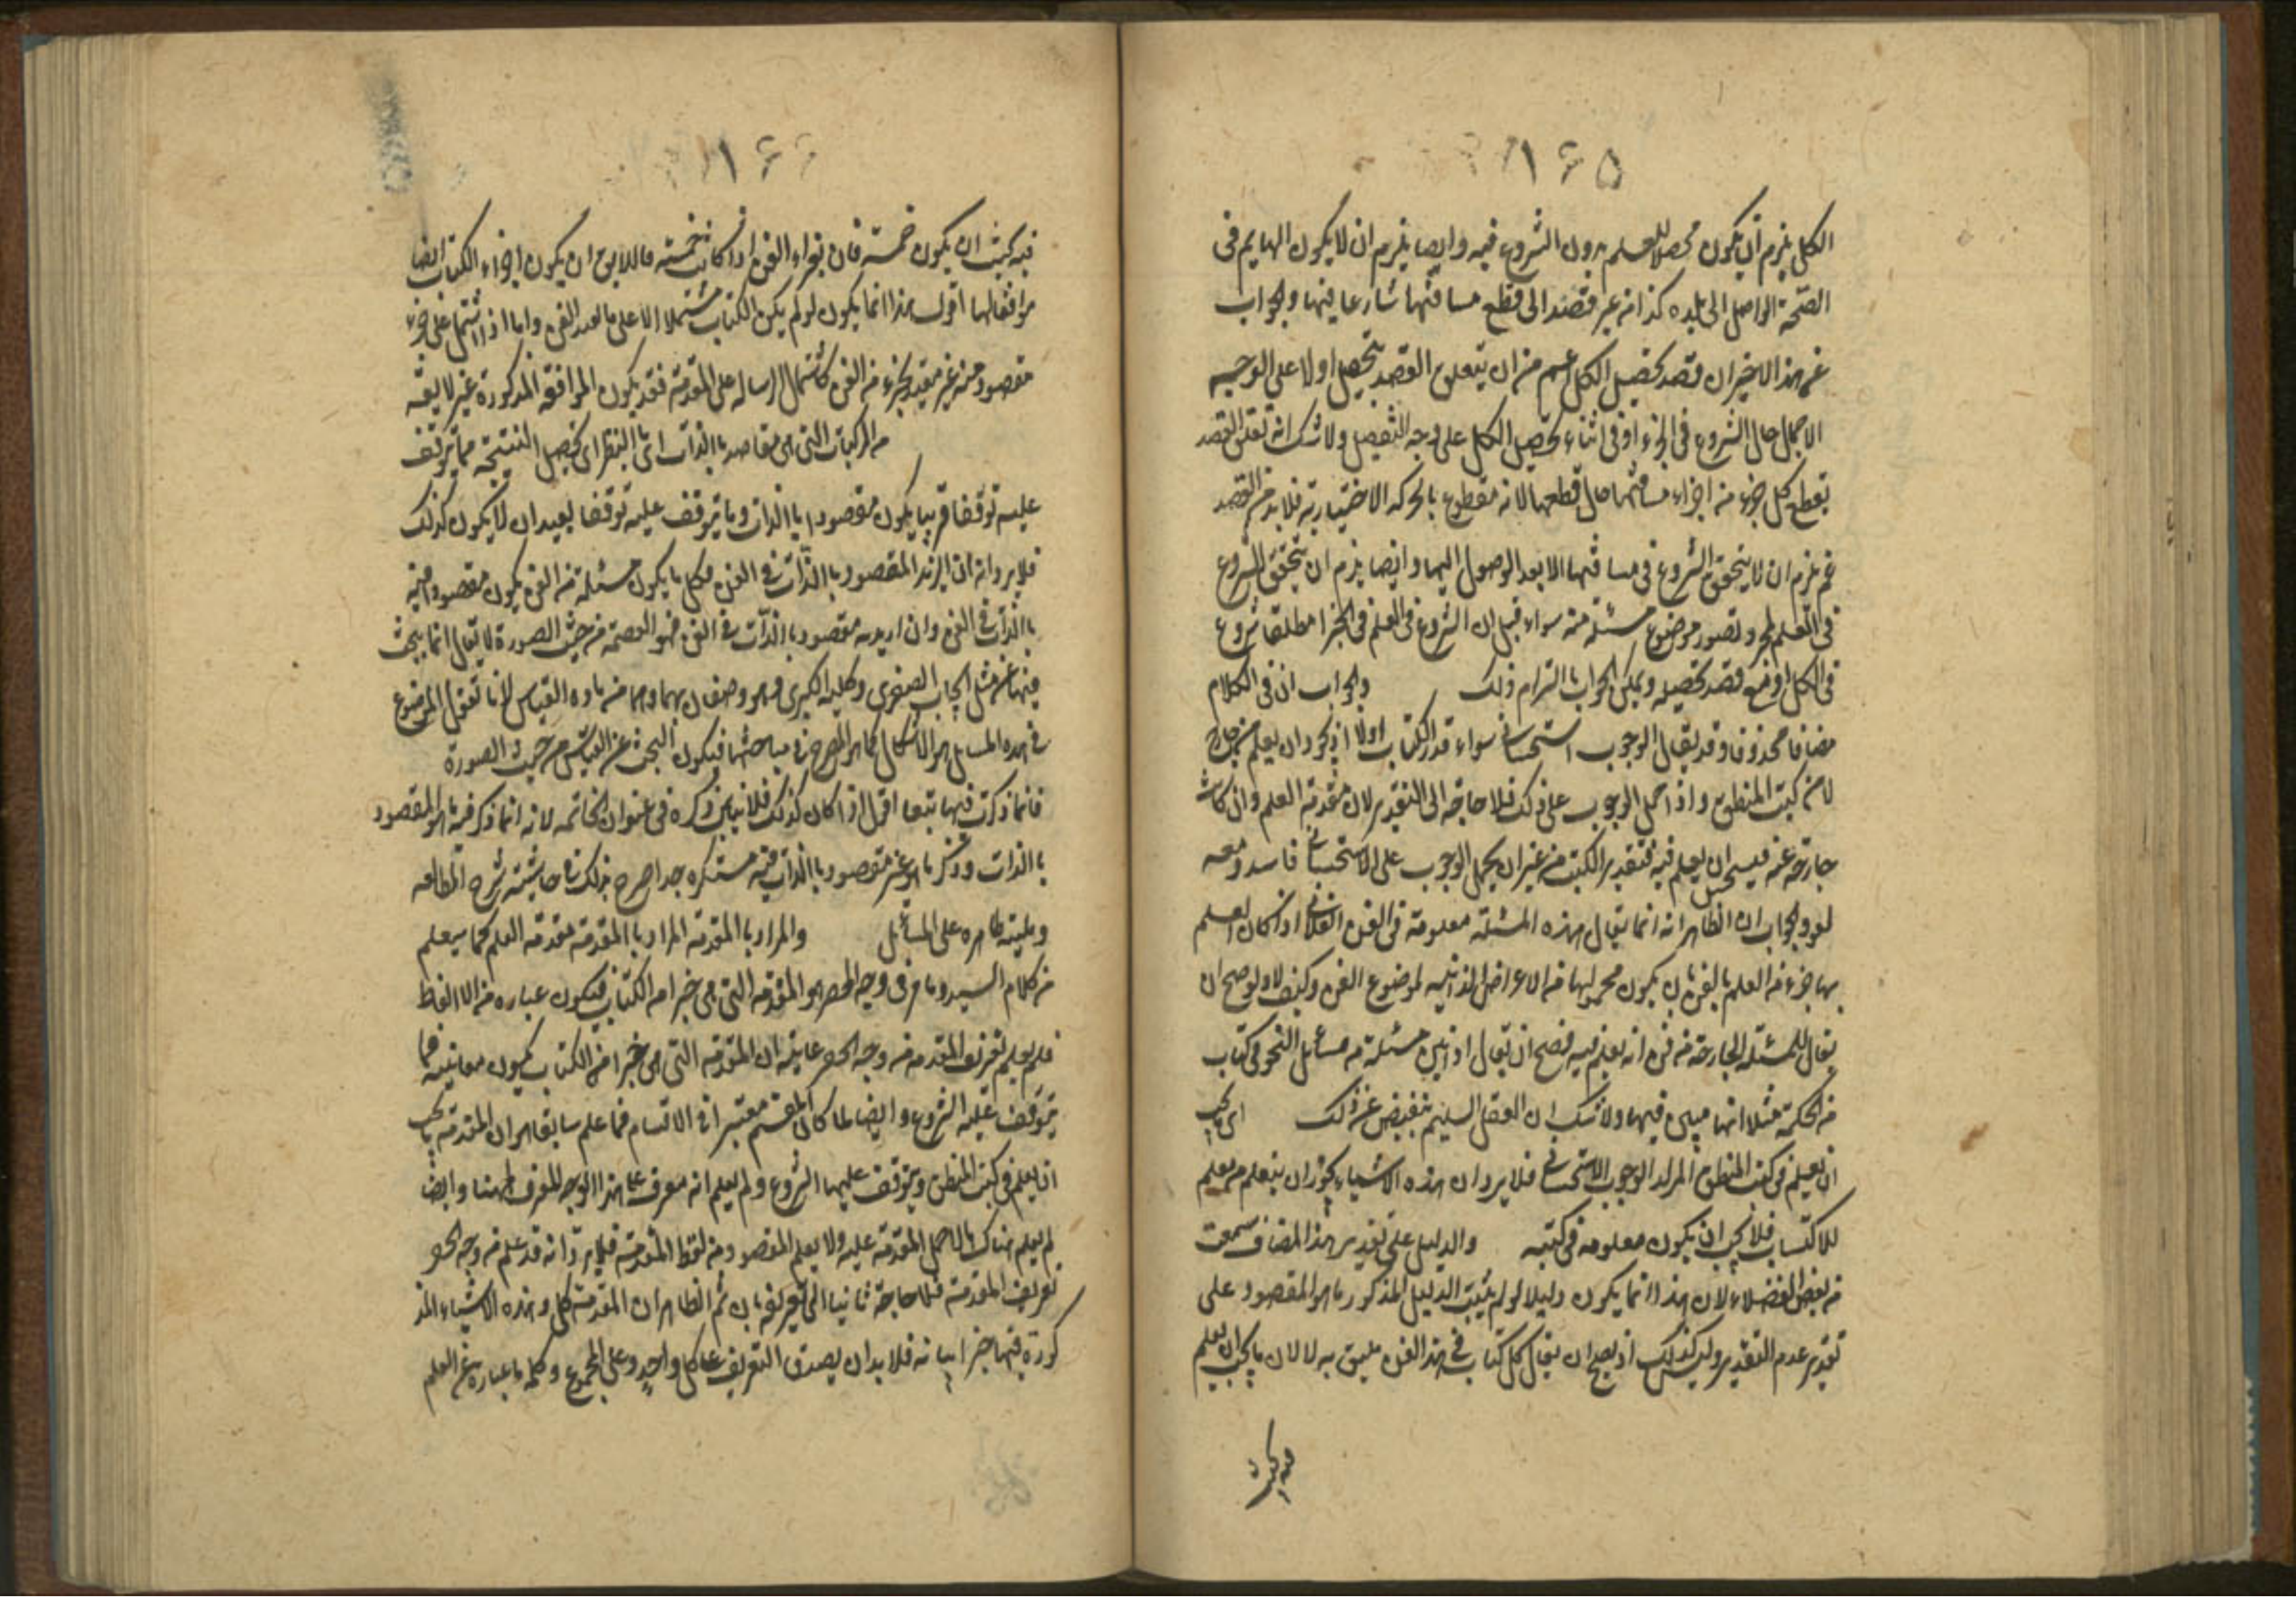 ١٦٥
الكل يلزم ان يكون محصلا للعلم بدون الشروع فيه وايضا يلزم ان لا يكون الهايم فى
الصحة الواصل الى بلده كذا من غير قصد الى قطع مسافتها شارعا فيها والجواب
عن هذا الاخير ان قصد تحصيل الكل اعم من ان يتعلق القصد بتحصيل اولا على الوجه
الاجمال حال الشروع فى الجزء او فى اثناء تحصيل الكل على وجه التفصيل ولا شك انه تعلق القصد
بقطع كل جزء من اجزاء مسافتها حال قطعها لانه مقطوع بالحركة الاختيارية فلا بد من القصد
نعم يلزم ان لا يتحقق الشروع فى مسافتها الا بعد الوصول اليها وايضا يلزم ان يتحقق الشروع
فى العلم بمجرد تصور موضوع مسئلة منه سواء قيل ان الشروع فى العلم فى الجزء مطلقا شروع
فى الكل او مع قصد تحصيله ويمكن الجواب بالتزام ذلك والجواب ان فى الكلام
مضافا محذوفا وقد يقال الوجوب استحسانى سواء قدر الكتاب اولا اذ يجوز ان يعلم من خارج
لا من كتب المنطق واذا حمل الوجوب على ذلك فلا حاجة الى التقدير لان مقدمة العلم وان كانت
خارجة عنه فيستحسن ان يعلم فيه فتقدير الكتب من غير ان يحمل الوجوب على الاستحسانى فاسد ومعه
لغو والجواب ان الظاهر انه انما يقال هذه المسئلة معلومة فى الفن الفلانى اذا كان العلم
بها جزء من العلم بالفن بان يكون محمولها من الاعراض الذاتية لموضوع الفن وكيف لا ولو صح ان
يقال للمسئلة الخارجة من فن انه يعلم فيه فصح ان يقال اذا بين مسئلة من مسائل النحو فى كتاب
من الحكمة مثلا انها مبين فيها ولا شك ان العقل السليم يتقبض عن ذلك اى يجب
ان يعلم فى كتب المنطق المراد الوجوب الاستحسانى فلا يرد ان هذه الاشياء يجوز ان يتعلم من معلم
للاكتساب فلا يجب ان يكون معلومة فى كتبه والدليل على تقدير هذا المضاف سمعت
من بعض الفضلاء لان هذا انما يكون دليلا لو لم يثبت الدليل المذكور ما هو المقصود على
تقدير عدم التقدير وليس كذلك اذ يصح ان يقال كل كتاب فى هذا الفن يليق به لا لان ما يجب ان يعلم
فيه يجب
١٦٦
فيه يجب ان يكون خمسة فان اجزاء الفن اذا كانت خمسة فاللايق ان يكون اجزاء الكتاب ايضا
موافقا لها اقول هذا انما يكون لو لم يكن الكتاب مشتملا الا على ما لعد الفن واما اذا اشتمل على جزء
مقصود منه غير مقيد بجزء من الفن كاشتمال الرسالة على المقدمة فقد يكون الموافقة المذكورة غير لايقة
من المركبات التى هى مقاصد بالذات اى بالنظر اى تحصيل النتيجة مما يتوقف
عليه توقفا قريبا يكون مقصودا بالذات وما يتوقف عليه توقفا بعيدا ان لا يكون كذلك
فلا يرد انه ان اريد المقصود بالذات فى الفن فكل ما يكون مسئلة من الفن يكون مقصودا منه
بالذات فى الفن وان اريد به مقصود بالذات فى الفن فهو العصمة من حيث الصورة لا يقال انما يبحث
فيها عن مثل ايجاب الصغرى وكلية الكبرى وهو وصفان بهما وهما من مادة القياس لانا نقول الموضوع
فى هذه المسايل هو الاشكال كما هو المصرح فى مباحثها فيكون البحث عن القياس من حيث الصورة
فانما ذكرت فيها تبعا اقول اذا كان كذلك فلا يناسب ذكره فى عنوان الخاتمة لانه انما ذكر فيه ما هو المقصود
بالذات وذكر ما هو غير مقصود بالذات فيه مستنكره جدا صرح بذلك فى حاشيته شرح المطالعه
وبليته ظاهره على المسائل والمراد بالمقدمة المراد بالمقدمة مقدمة العلم كما سيعلم
من كلام السيد وما مر فى وجه الحصر هو المقدمة التى هى جزء من الكتاب فتكون عبارة من الالفاظ
فلم يعلم تعريف المقدمة من وجه الحصر غايته ان المقدمة التى هى جزء من الكتاب يكون معانيه مما
يتوقف عليه الشروع وايضا لما كان المقسم معتبرا فى الاقسام فما علم سابقا هو ان المقدمة ما يجب
ان يعلم فى كتب المنطق ويتوقف عليها الشروع ولم يعلم انه معرف على هذا الوجه المعرف ههنا وايضا
لم يعلم هناك ما لاجل المقدمة عليه ولا يعلم المقصود من لفظ المقدمة فلا يرد انه قد علم من وجه الحصر
تعريف المقدمة فلا حاجة ثانيا الى تعريفه بان ثم الظاهر ان المقدمة كل وهذه الاشياء المذ
كورة فيها جزئياته فلا بد ان يصدق التعريف على كل واحد وعلى المجموع وكلمة ما عبارة عن العلم